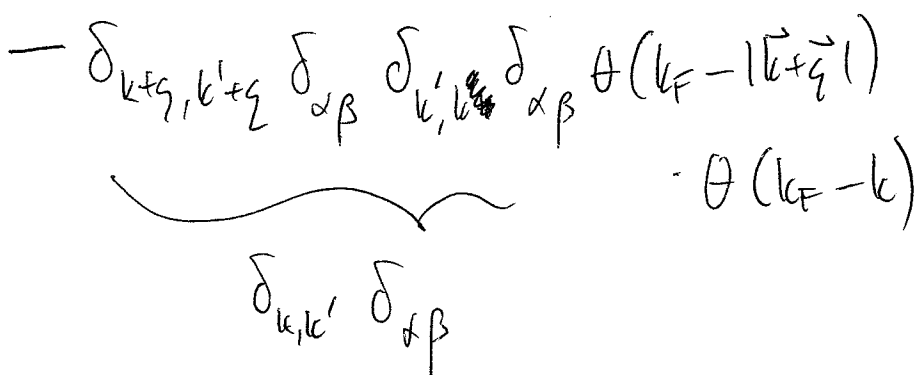 − δ_{k+q, k'+q} δ_{αβ} δ_{k', k} δ_{αβ} θ(k_F − |k⃗+q⃗|)
· θ(k_F − k)
δ_{k,k'} δ_{αβ}